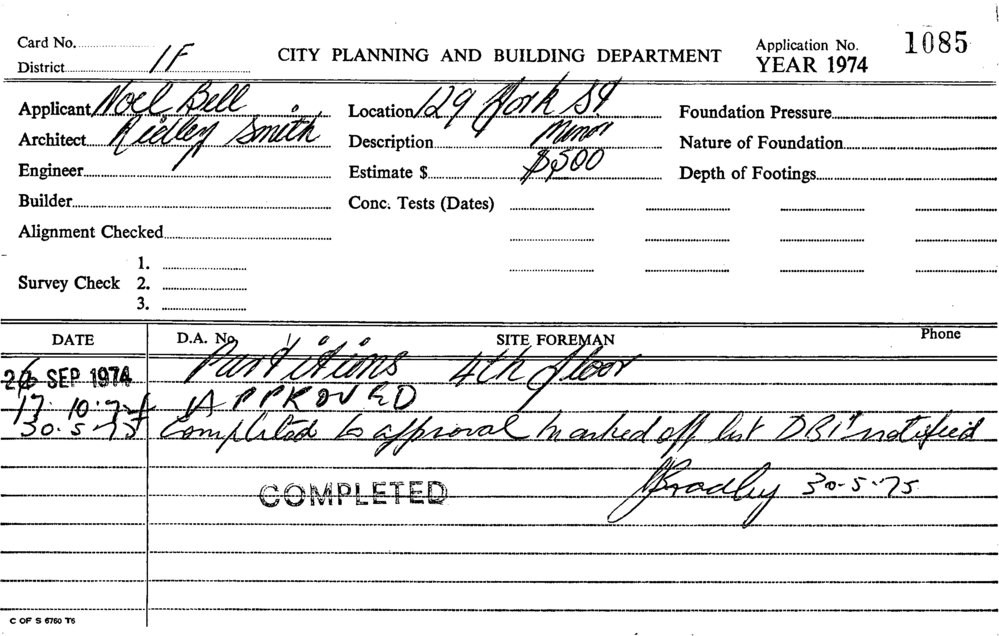 Card No.
District 1F
CITY PLANNING AND BUILDING DEPARTMENT
Application No. 1085
YEAR 1974
Applicant Noel Bell
Location 129 York St
Foundation Pressure
Architect Ridley Smith
Description Minor
Nature of Foundation
Engineer
Estimate $ $500
Depth of Footings
Builder
Conc. Tests (Dates)
Alignment Checked
Survey Check
1.
2.
3.
DATE
D.A. No.
SITE FOREMAN
Phone
SEP 1974 Partitions 4th floor
17. 10. 74 APPROVED
30. 5. 75 Completed to approval marked off list notified
COMPLETED
Bradley 30-5-75
C OF S 6760 T6